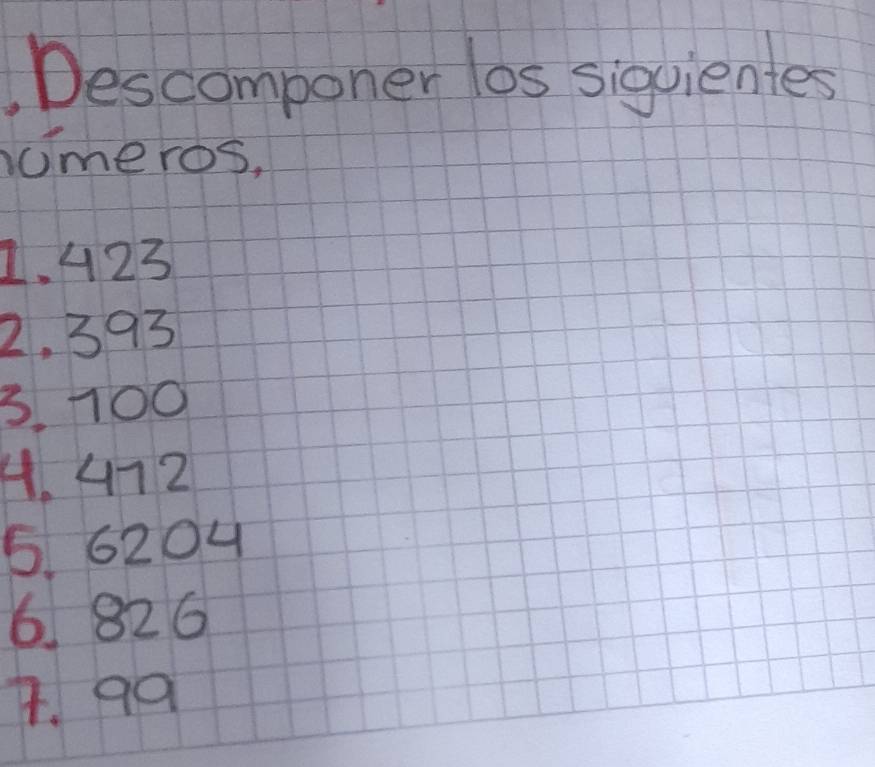 .Descomponer los siguientes
números.
1. 423
2. 393
3. 100
4. 412
5. 6204
6. 826
7. 99